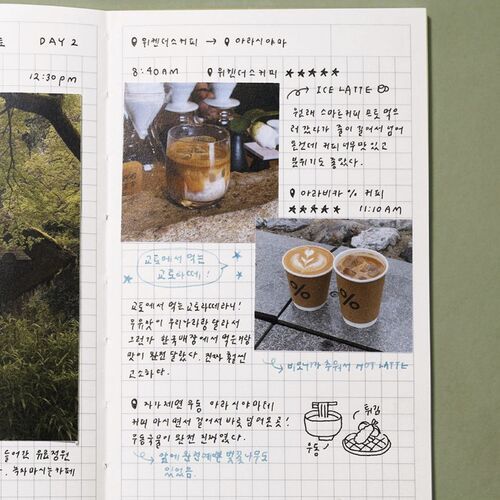 DAY 2
12:30pm
들어간 유료정원
녹차마시는카페
위켄더스커피 → 아라시야마
8:40AM 위켄더스커피 ★★★★★
ICE LATTE
원래 스마트커피 먹으
려 갔다가 줄이 길어서 넘어
온건데 커피 너무 맛있고
분위기도 좋았다.
아라비카 % 커피
★★★★★ 11:10AM
교토에서 먹는
교토라떼!
%
%
비오니까 추워서 HOT LATTE
교토에서 먹는 교토라떼라니!
우유맛이 우리나라랑 달라서
그런가 한국매장에서 먹은거랑
맛이 완전 달랐다. 진짜 훨씬
고소하다.
자가제면 우동 아라시야마테이
커피 마시면서 걸어서 바로 넘어온 곳!
우동국물이 완전 진짜였다.
앞에 완전예쁜 벚꽃나무도
있었음.
튀김
우동